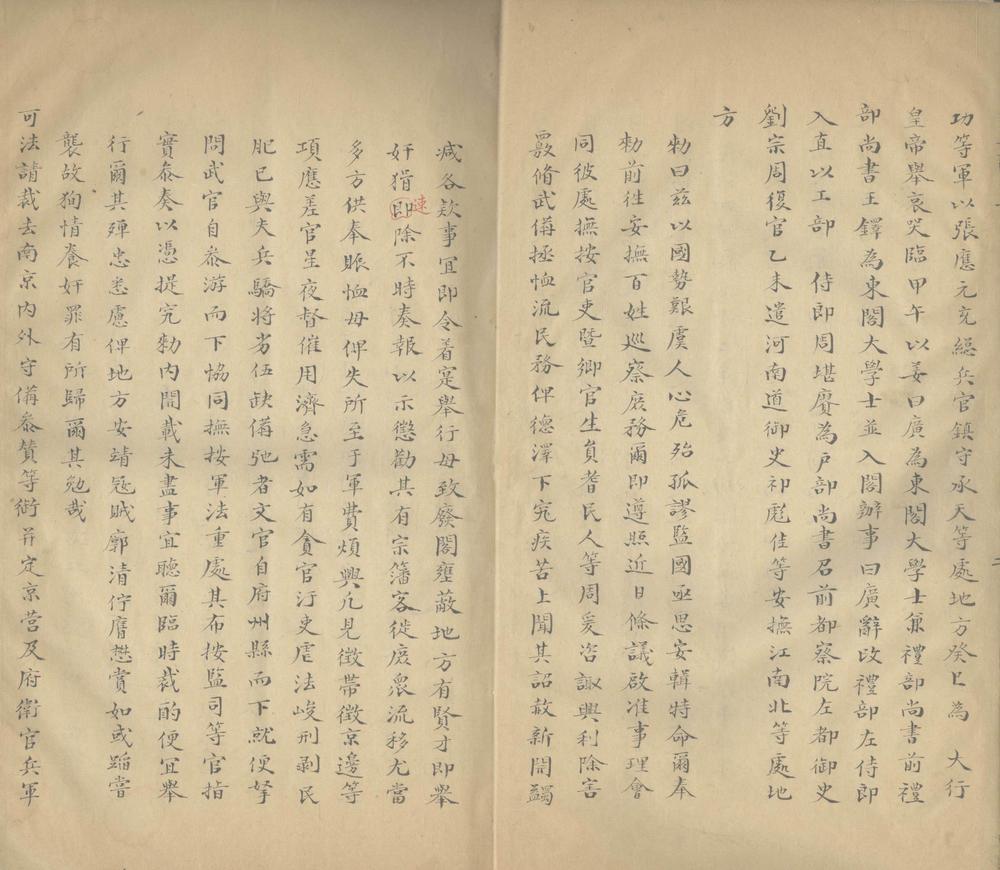 功等軍以張應元充總兵官鎮守承天等處地方癸巳為　大行
皇帝舉哀哭臨甲午以姜曰廣為東閣大學士兼禮部尚書前禮
部尚書王鐸為東閣大學士並入閣辦事曰廣辭改禮部左侍郎
入直以工部　侍郎周堪賡為戶部尚書召前都察院左都御史
劉宗周復官乙未遣河南道御史祁彪佳等安撫江南北等處地
方
勑曰茲以國勢艱虞人心危殆孤謬監國亟思安輯特命爾奉
勑前往安撫百姓巡察庶務爾即遵照近日條議啟准事理會
同彼處撫按官吏暨鄉官生員耆民人等周爰咨諏興利除害
覈脩武備拯恤流民務俾德澤下究疾苦上聞其詔赦新開蠲
減各款事宜即令着寔舉行毋致廢閣壅蔽地方有賢才即舉
奸猾即速除不時奏報以示懲勸其有宗藩客徙庶衆流移尤當
多方供奉賑恤毋俾失所至于軍費煩興凢見徵帶徵京邊等
項應差官星夜督催用濟急需如有貪官汙吏虐法峻刑剥民
肥已與夫兵驕將劣伍缺備弛者文官自府州縣而下就便拏
問武官自叅游而下協同撫按軍法重處其布按監司等官指
實叅奏以憑提究勑內開載未盡事宜聽爾臨時裁酌便宜舉
行爾其殫忠悉慮俾地方安靖冦賊廓清佇膺懋賞如或蹈甞
襲故狥情養奸罪有所歸爾其勉哉
可法請裁去南京內外守備叅贊等銜并定京營及府衛官兵軍